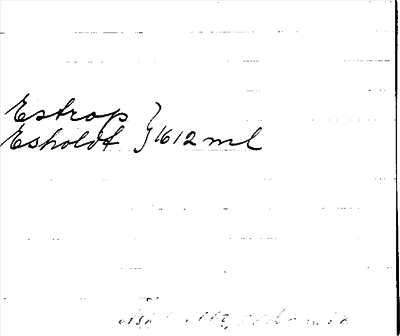 Estrop
Esholdt } 1612 ml